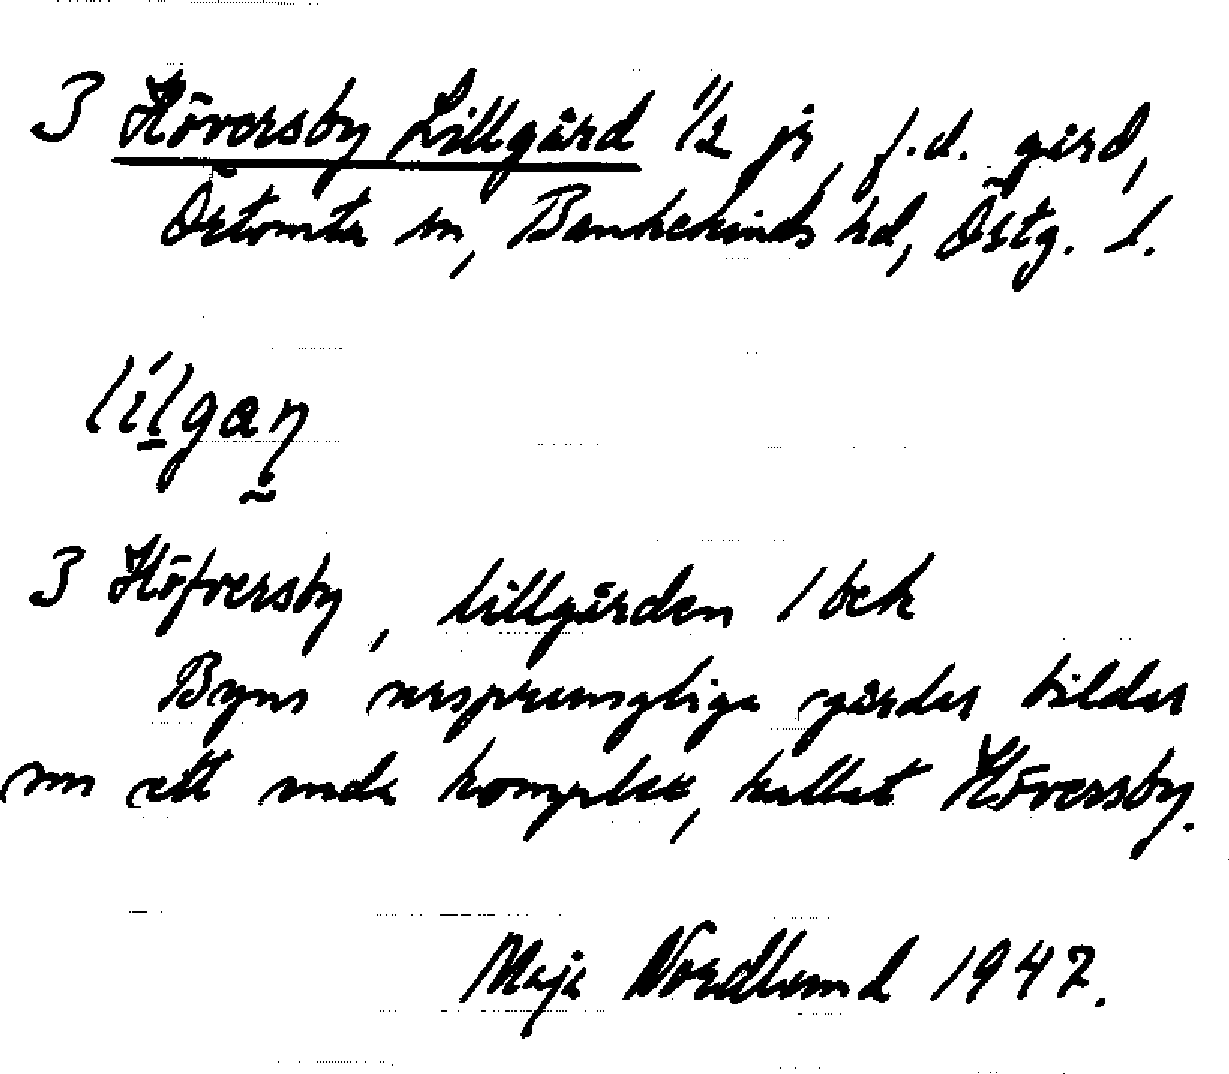 3 Höversby Lillgård 1/2 jr, f.d. gård,
Örtomta sn, Bankekinds hd, Östg. l.
lílgaŋ
3 Höfversby, lillgården 1 bek
Byns ursprungliga gårdar bildar
nu ett enda komplex, kallat Höversby.
Maja Nordlund 1947.